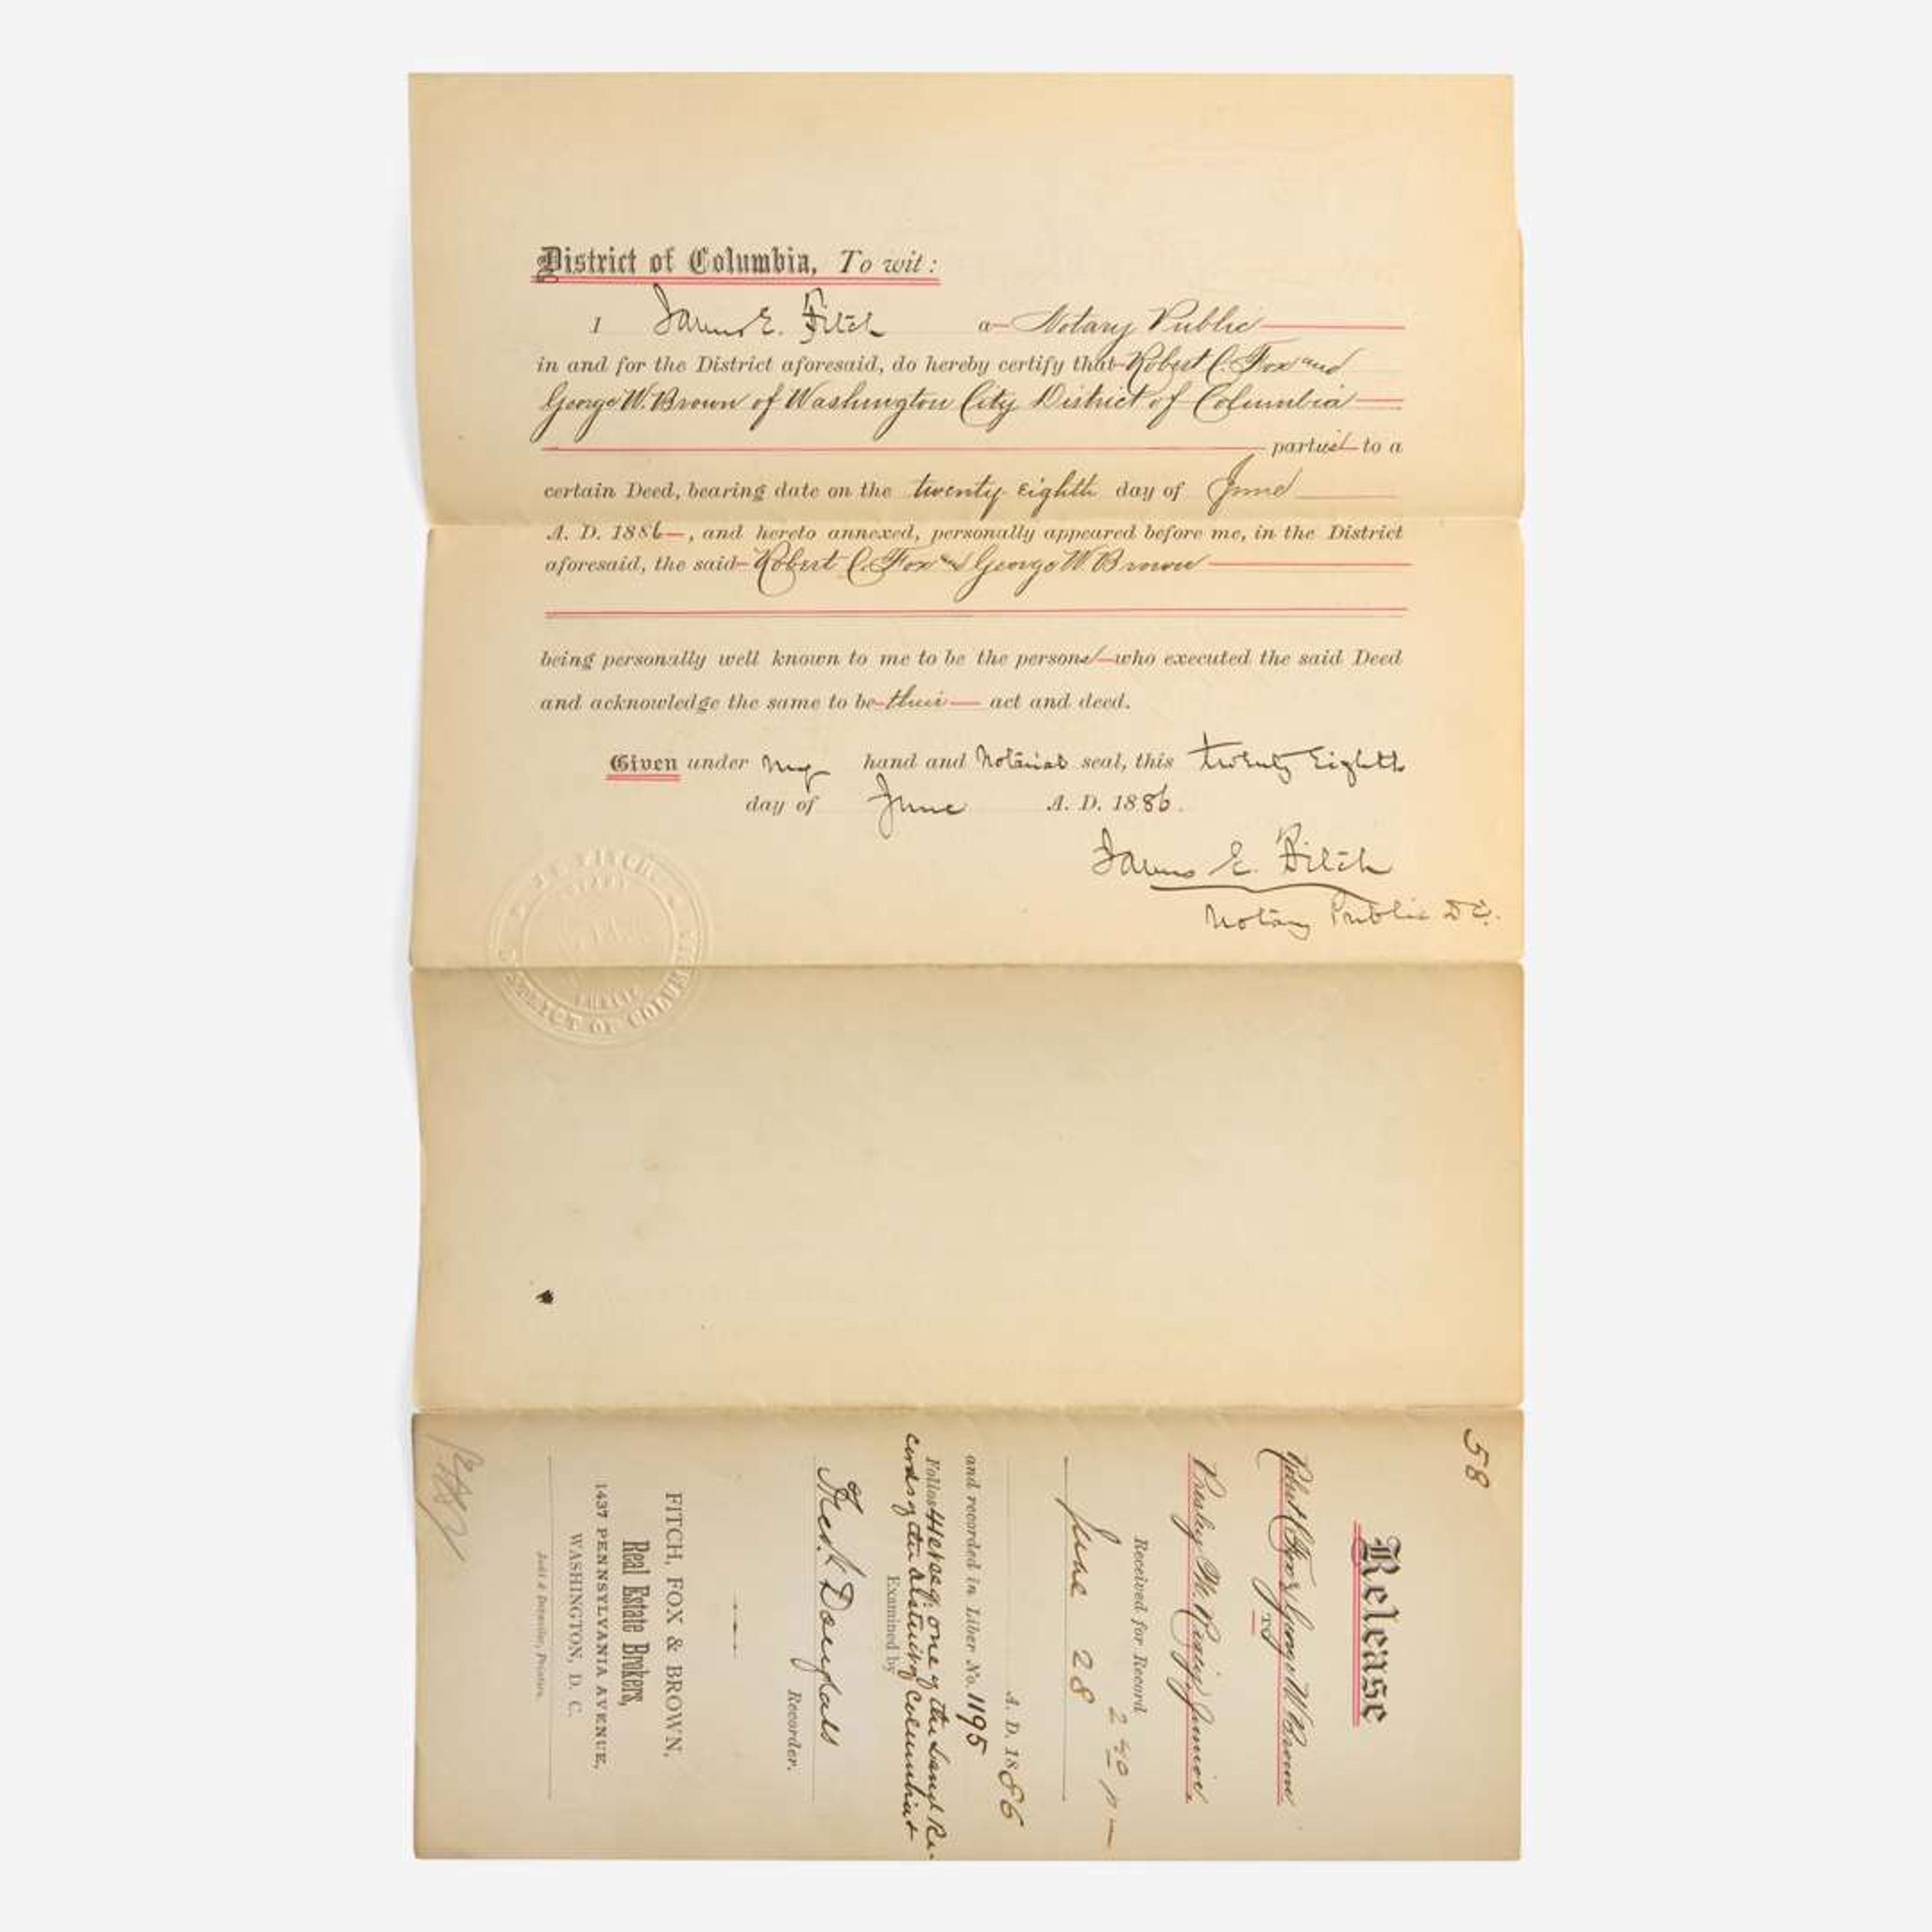 District of Columbia, To wit:
I James E. Fitch a Notary Public
in and for the District aforesaid, do hereby certify that Robert C. Fox and
George W. Brown of Washington City District of Columbia
parties to a
certain Deed, bearing date on the twenty eighth day of June
A. D. 1886, and hereto annexed, personally appeared before me, in the District
aforesaid, the said Robert C. Fox and George W. Brown
being personally well known to me to be the persons who executed the said Deed
and acknowledge the same to be their act and deed.
Given under my hand and Notarial seal, this twenty eighth
day of June A. D. 1886.
James E. Fitch
Notary Public D.C.
FITCH
PUBLIC
DISTRICT OF COLUMBIA
58
Release
Robert C. Fox & George W. Brown
TO
Junior
Received for Record
2 40 P
June 28
A. D. 1886
and recorded in Liber No. 1195
Folio 441 et seq. one of the Land Re-
cords of the District of Columbia
Examined by
Fred.k Douglass
Recorder.
FITCH, FOX & BROWN,
Real Estate Brokers,
1437 PENNSYLVANIA AVENUE,
WASHINGTON, D. C.
Judd & Detweiler, Printers.